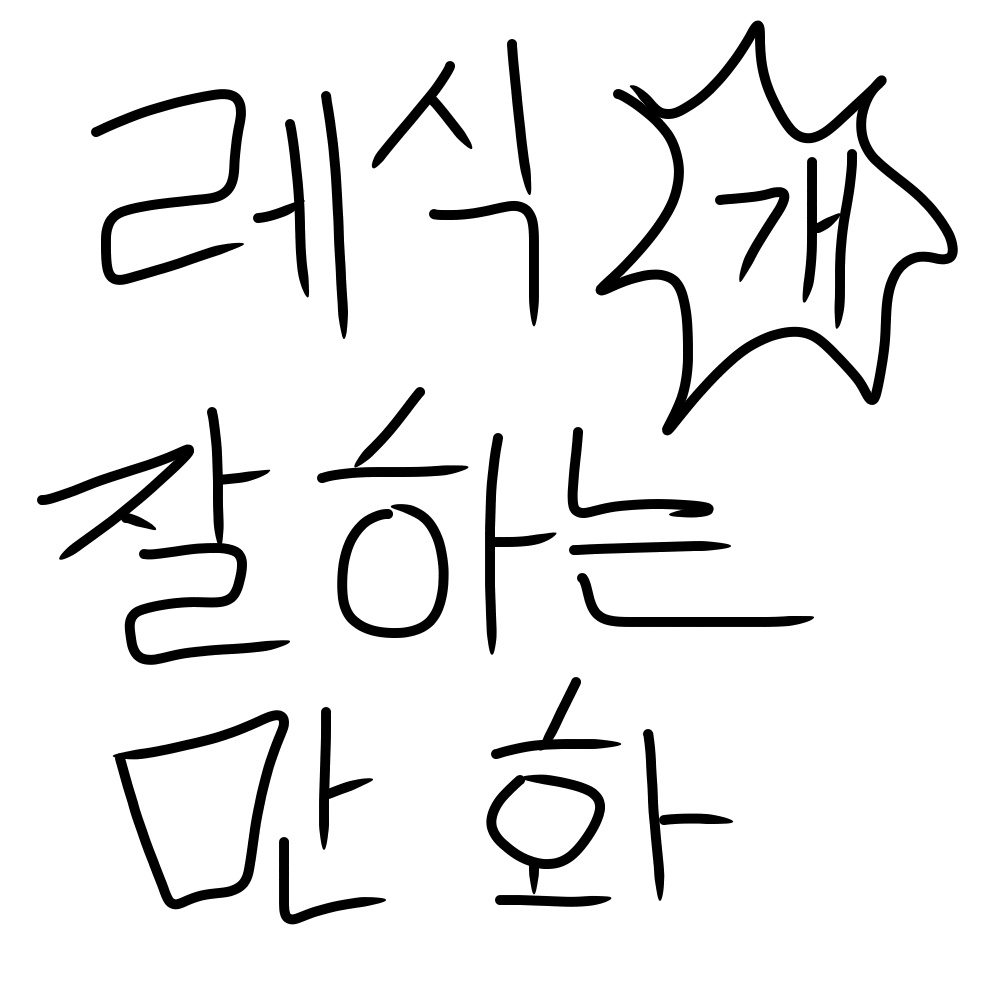 레식 개
잘하는
만화